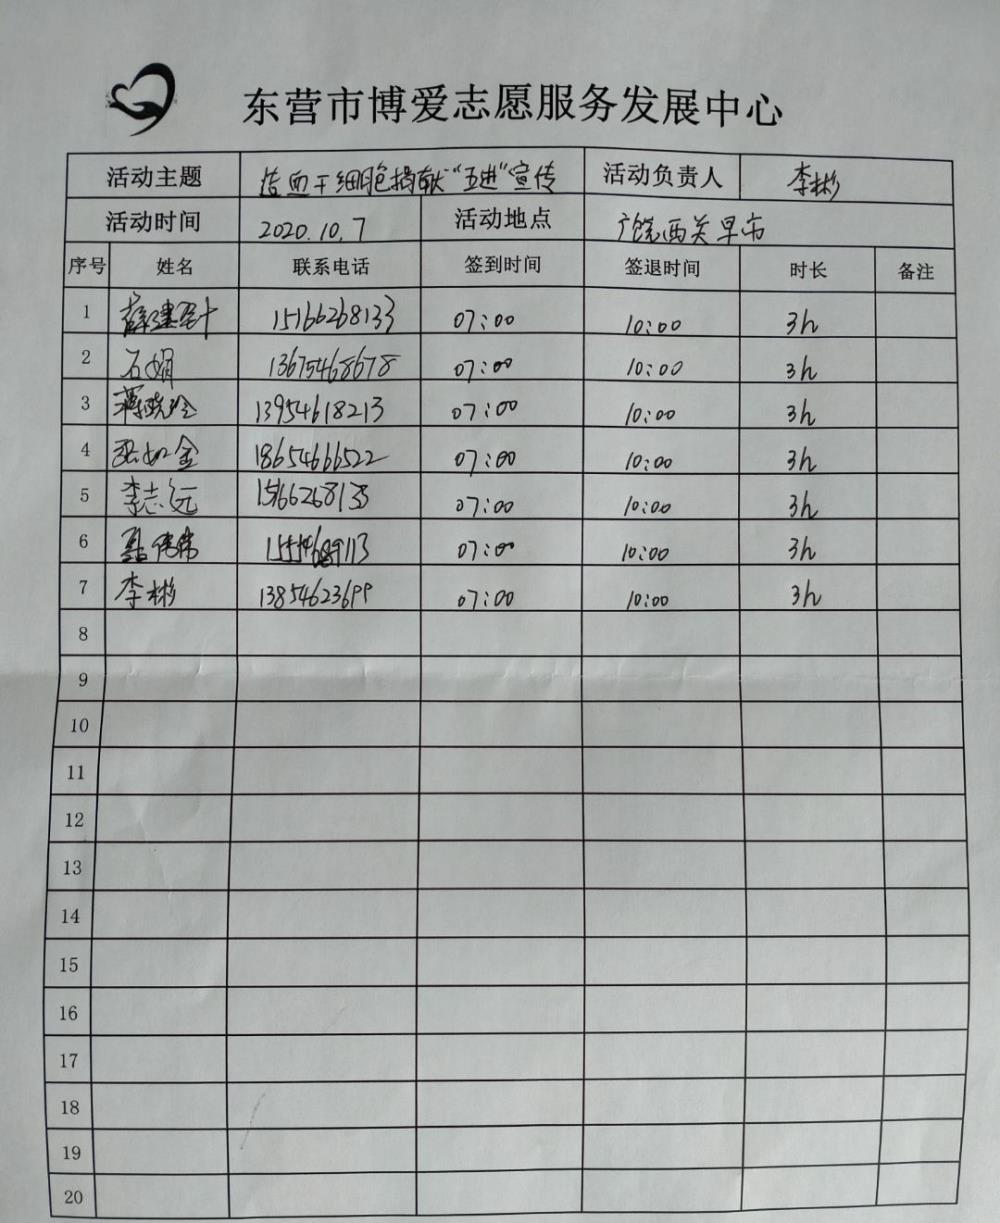 东营市博爱志愿服务发展中心
活动主题 造血干细胞捐献“五进”宣传 活动负责人 李彬
活动时间 2020.10.7 活动地点 广饶西关早市
序号 姓名 联系电话 签到时间 签退时间 时长 备注
1 15166268133 07:00 10:00 3h
2 石娟 13675468678 07:00 10:00 3h
3 13954618213 07:00 10:00 3h
4 18654666522 07:00 10:00 3h
5 李志远 15166268133 07:00 10:00 3h
6 聂伟伟 07:00 10:00 3h
7 李彬 13854623699 07:00 10:00 3h
8
9
10
11
12
13
14
15
16
17
18
19
20